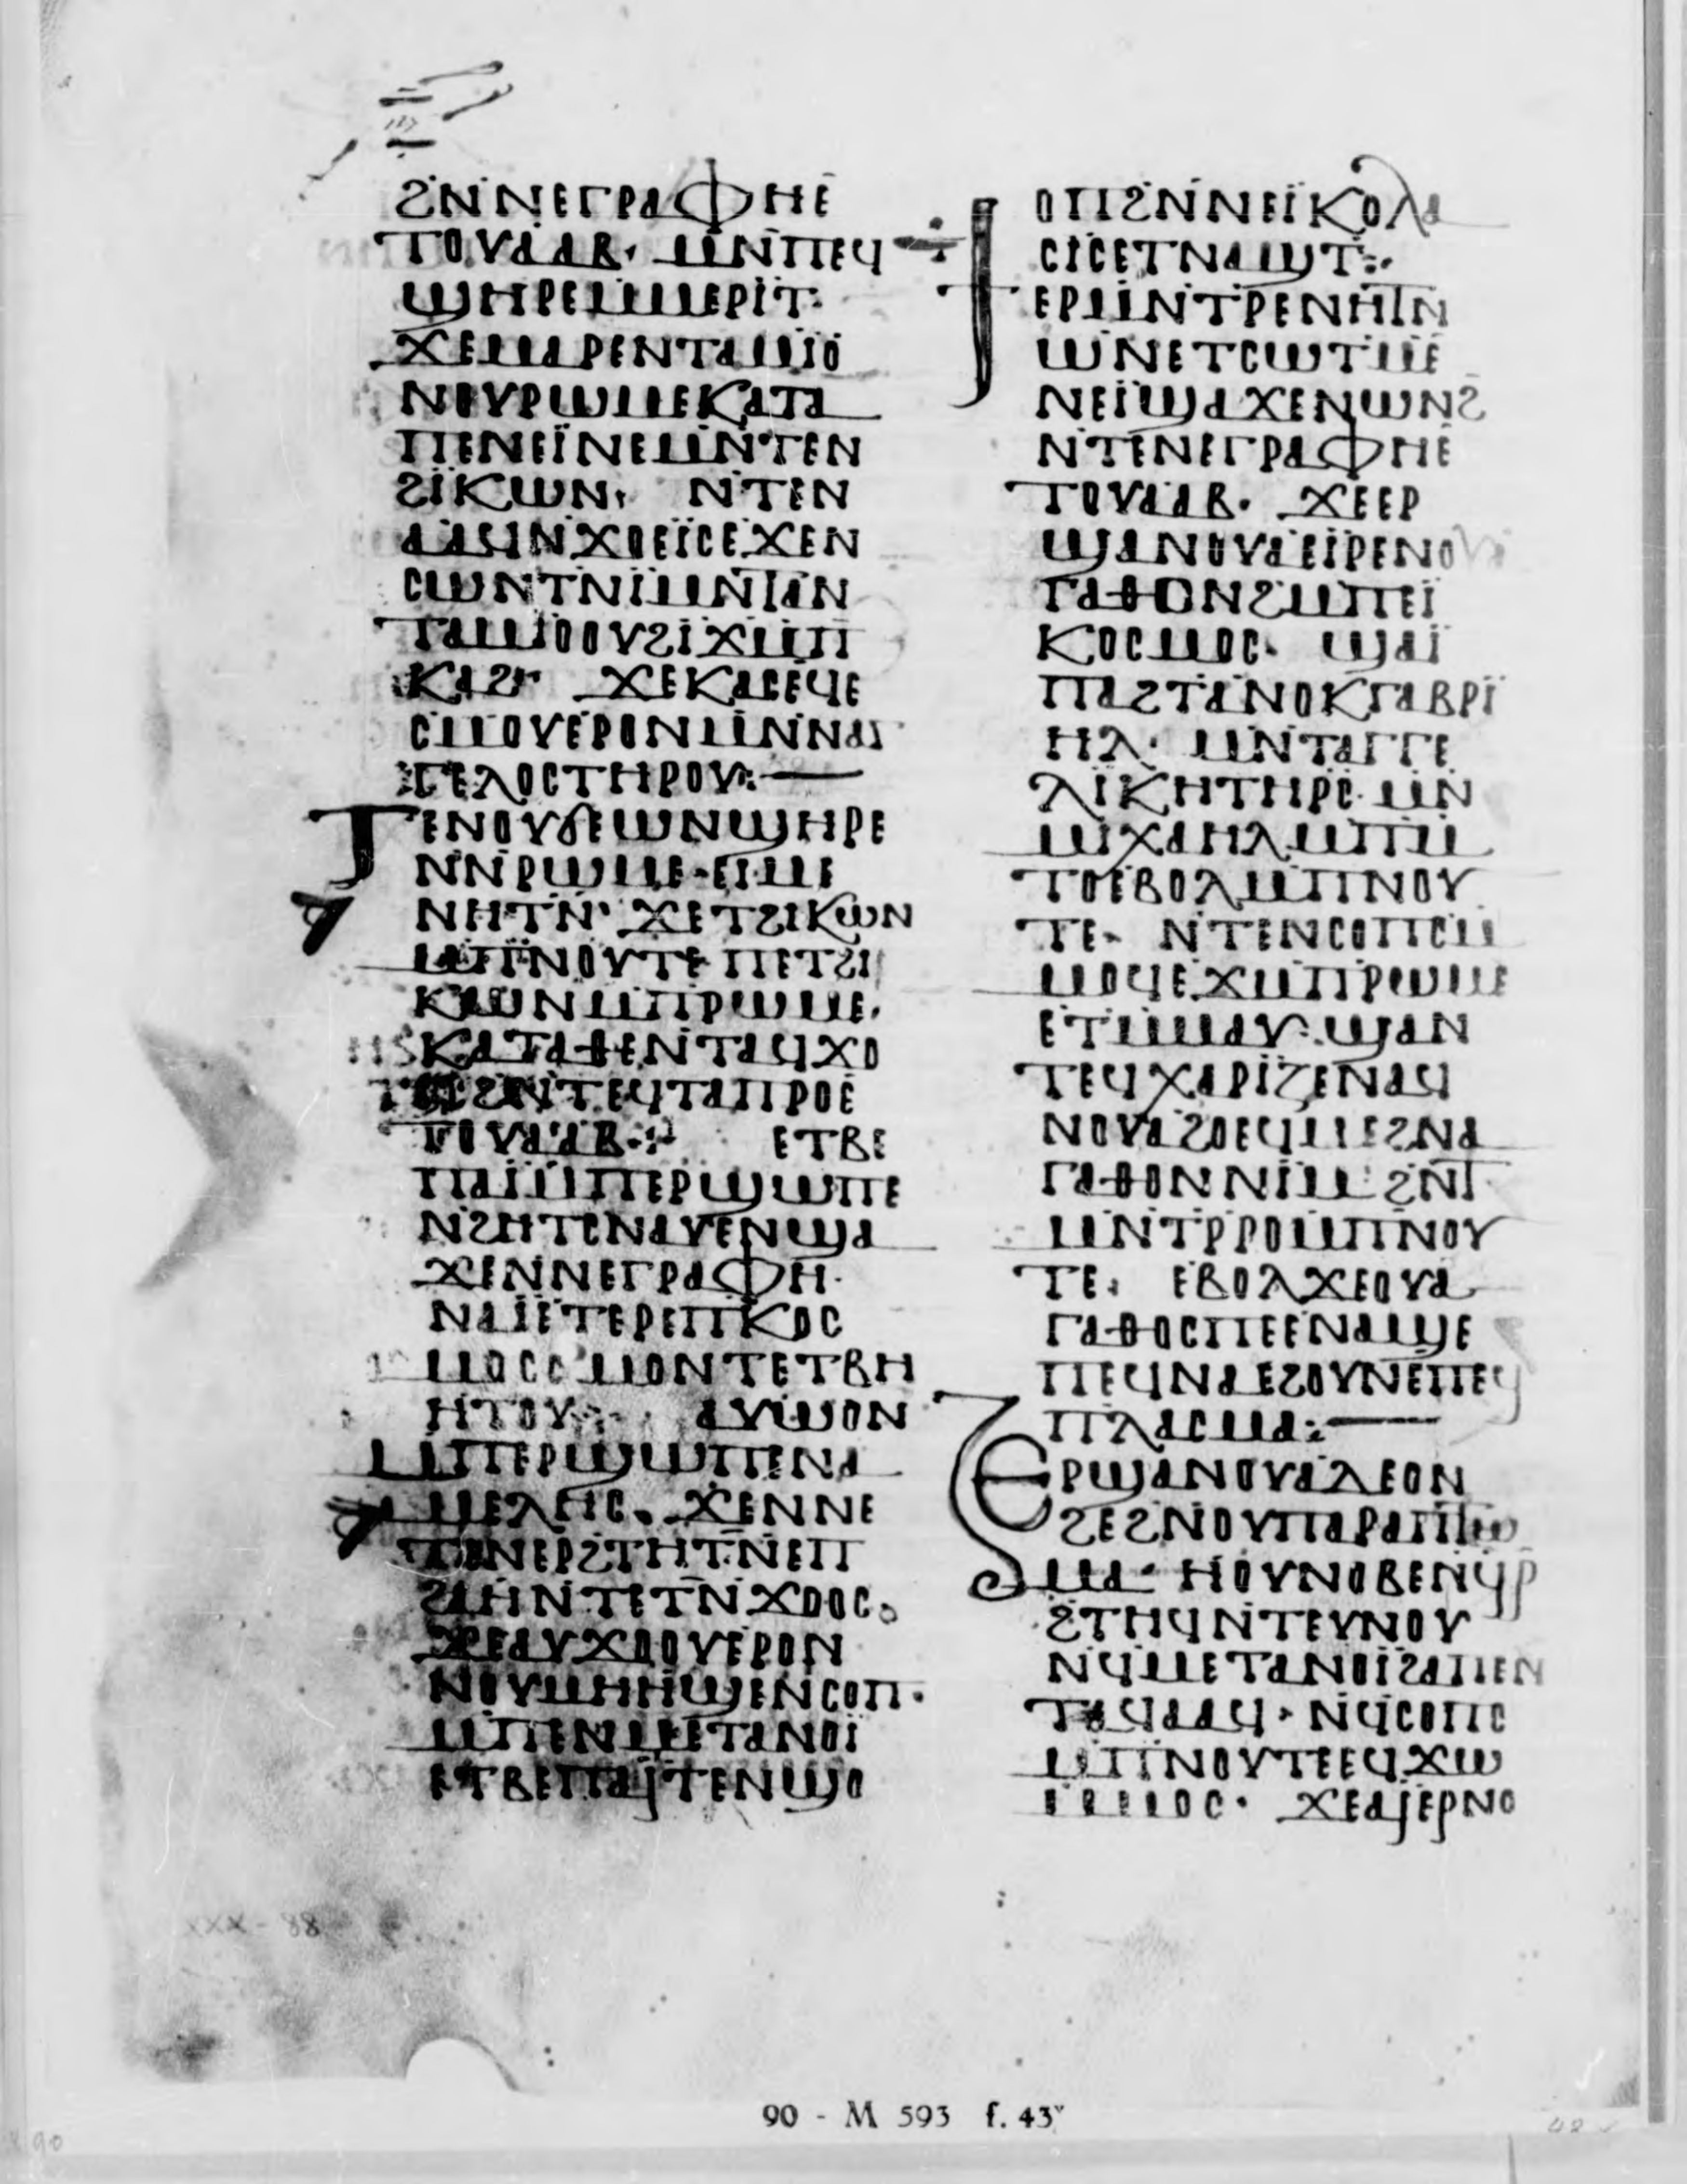 ϨⲚⲚⲈⲄⲢⲀⲪⲎⲈ
ⲦⲞⲨⲀⲀⲂ· ⲘⲚⲠⲈϤ
ϢⲎⲢⲈⲘⲘⲈⲢⲒⲦ·
ϪⲈⲘⲀⲢⲈⲚⲦⲀⲘⲒⲞ
ⲚⲞⲨⲢⲰⲘⲈⲔⲀⲦⲀ
ⲠⲈⲚⲈⲒⲚⲈⲘⲚⲦⲈⲚ
ϨⲒⲔⲰⲚ· ⲚⲦⲈⲚ
ϪⲞⲈⲒⲤⲈϪⲈⲚ
ⲤⲰⲚⲦⲚⲒⲘⲚⲦⲀⲚ
ⲦⲀⲘⲒⲞⲞⲨϨⲒϪⲘⲠ
ⲔⲀϨ· ϪⲈⲔⲀⲤⲈϤⲈ
ⲤⲘⲞⲨⲈⲢⲞⲚⲘⲚⲚⲀⲄ
ⲄⲈⲖⲞⲤⲦⲎⲢⲞⲨ:—
ⲦⲈⲚⲞⲨϬⲈⲰⲚϢⲎⲢⲈ
ⲚⲚⲢⲰⲘⲈ·ⲈⲒⲘⲈ
ⲚⲎⲦⲚ· ϪⲈⲦϨⲒⲔⲰⲚ
ⲘⲠⲚⲞⲨⲦⲈ ⲠⲈⲦϨⲒ
ⲔⲰⲚⲘⲠⲢⲰⲘⲈ·
ⲔⲀⲦⲀⲐⲈⲚⲦⲀϤϪⲞ
ϨⲚⲦⲈϤⲦⲀⲠⲢⲞⲈ
ⲦⲞⲨⲀⲀⲂ:· ⲈⲦⲂⲈ
ⲠⲀⲒⲘⲠⲈⲢϢⲰⲠⲈ
ⲚϨⲎⲦⲤⲚⲀⲨⲈⲚϢⲀ
ϪⲈⲚⲚⲈⲄⲢⲀⲪⲎ·
ⲚⲀⲒⲈⲦⲈⲢⲈⲠⲔⲞⲤ
ⲘⲞⲤⲤⲘⲞⲚⲦⲈⲦⲂⲎ
ⲎⲦⲞⲨ·: ⲀⲨⲰⲞⲚ
ⲘⲠⲈⲢϢⲰⲠⲈⲚⲀ
ⲘⲈⲖⲎⲤ· ϪⲈⲚⲚⲈ
ⲚⲈⲢϨⲦⲎⲦⲚⲈⲠ
ϨⲀⲎⲚⲦⲈⲦⲚϪⲞⲞⲤ·
ϪⲈⲀⲨϪⲞⲞⲨⲈⲢⲞⲚ
ⲚⲞⲨⲘⲎⲎϢⲈⲚⲤⲞⲠ·
ⲘⲠⲈⲚⲘⲈⲦⲀⲚⲞⲒ
ⲈⲦⲂⲈⲠⲀⲒⲦⲈⲚϢⲞ
ⲞⲠϨⲚⲚⲈⲒⲔⲞⲖⲀ
ⲤⲒⲤⲈⲦⲚⲀϢⲦ:·
ϮⲈⲢⲘⲚⲦⲢⲈⲚⲎⲦⲚ
ⲰⲚⲈⲦⲤⲰⲦⲘⲈ
ⲚⲈⲒϢⲀϪⲈⲚⲰⲚϨ
ⲚⲦⲈⲚⲈⲄⲢⲀⲪⲎⲈ
ⲦⲞⲨⲀⲀⲂ· ϪⲈⲈⲢ
ϢⲀⲚⲞⲨⲀⲈⲒⲢⲈⲚⲞⲨ
ⲄⲀⲐⲞⲚϨⲘⲠⲈⲒ
ⲔⲞⲤⲘⲞⲤ· ϢⲀⲒ
ⲠⲀϨⲦⲀⲚⲞⲔⲄⲀⲂⲢⲒ
ⲎⲖ· ⲘⲚⲦⲀⲄⲄⲈ
ⲖⲒⲔⲎⲦⲎⲢⲤ·ⲘⲚ
ⲘⲒⲬⲀⲎⲖⲘⲠⲘ
ⲦⲞⲈⲂⲞⲖⲘⲠⲚⲞⲨ
ⲦⲈ· ⲚⲦⲈⲚⲤⲞⲠⲤⲘ
ⲘⲞϤⲈϪⲘⲠⲢⲰⲘⲈ
ⲈⲦⲘⲘⲀⲨ·ϢⲀⲚ
ⲦⲈϤⲬⲀⲢⲒⲌⲈⲚⲀϤ
ⲚⲞⲨⲀϨⲞⲈϤⲘⲈϨⲚⲀ
ⲄⲀⲐⲞⲚⲚⲒⲘ·ϨⲚⲦ
ⲘⲚⲦⲢⲢⲞⲘⲠⲚⲞⲨ
ⲦⲈ· ⲈⲂⲞⲖϪⲈⲞⲨⲀ
ⲄⲀⲐⲞⲤⲠⲈⲈⲚⲀϢⲈ
ⲠⲈϤⲚⲀⲈϨⲞⲨⲚⲈⲠⲈϤ
ⲠⲖⲀⲤⲘⲀ:—
ⲈⲢϢⲀⲚⲞⲨⲀⲖⲈⲞⲚ
ϨⲈϨⲚⲞⲨⲠⲀⲢⲀⲠⲦⲰ
ⲘⲀ· ⲎⲞⲨⲚⲞⲂⲈⲚϤⲢ
ϨⲦⲎϤⲚⲦⲈⲨⲚⲞⲨ
ⲚϤⲘⲈⲦⲀⲚⲞⲒϨⲀⲠⲈⲚ
ⲦⲀϤⲀⲀϤ· ⲚϤⲤⲞⲠⲤ
ⲘⲠⲚⲞⲨⲦⲈⲈϤϪⲰ
ⲘⲘⲞⲤ· ϪⲈⲀⲒⲈⲢⲚⲞ
XXX - 88
90 - M 593 f. 43ᵛ
90